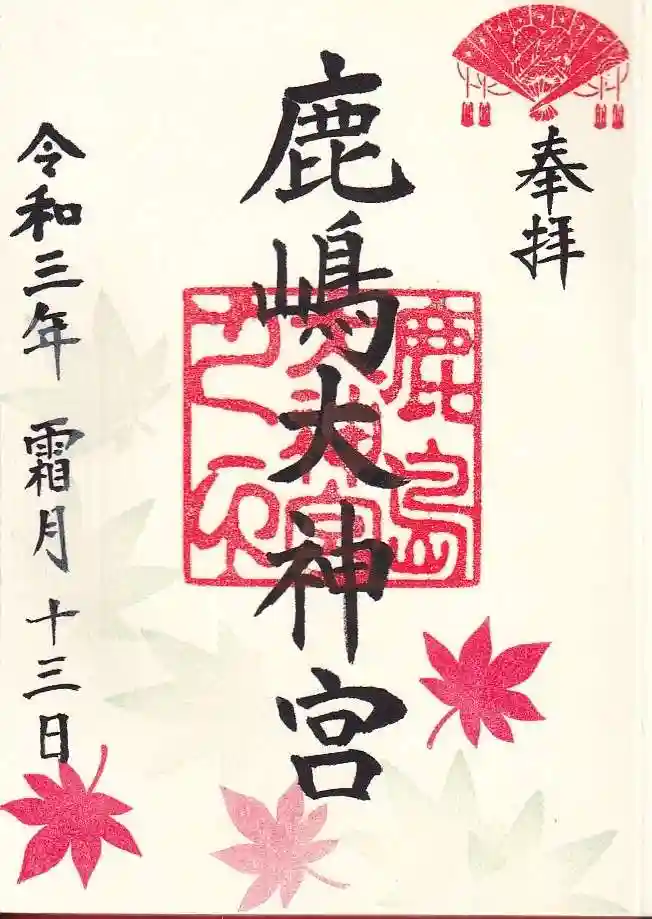 奉拝
鹿嶋大神宮
鹿島
大神宮
之印
令和三年 霜月 十三日